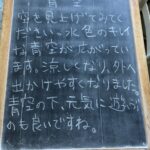 青空
空を見上げてみてく
ださい。水色のキレイ
な青空が広がってい
ます。涼しくなり、外へ
出かけやすくなりました。
青空の下、元気に遊ぶ
のも良いですね。